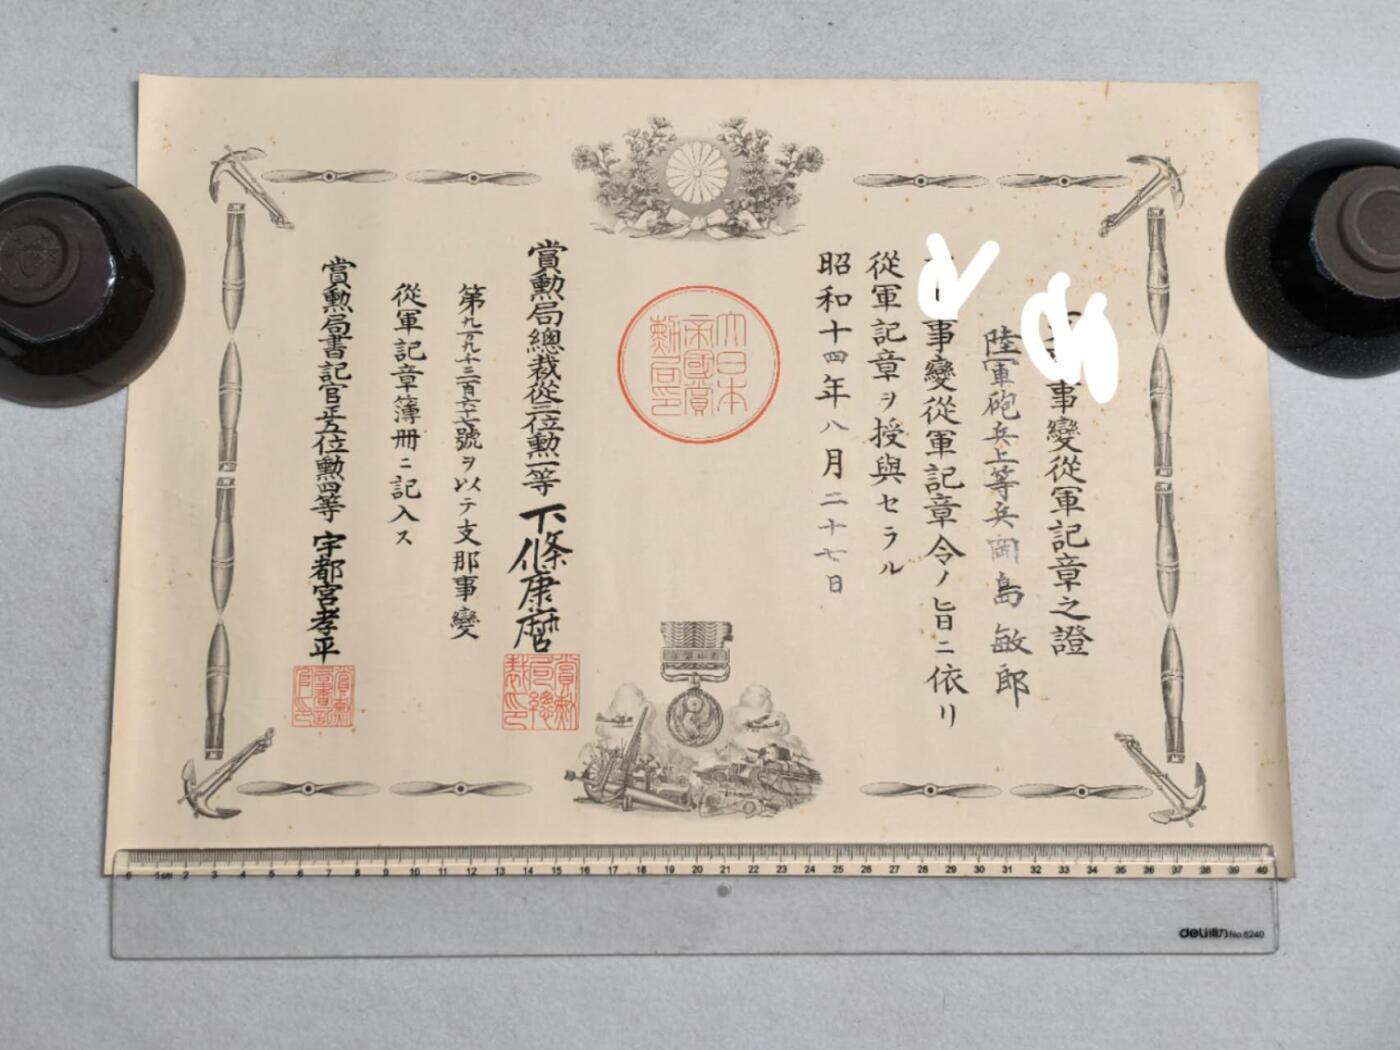 事變從軍記章之證
陸軍砲兵上等兵 岡島敏郎
事變從軍記章令ノ旨ニ依リ
從軍記章ヲ授與セラル
昭和十四年八月二十七日
大日本
帝國賞
勳局印
賞勲局總裁從三位勲一等 下條康麿
賞勳
局總
裁印
號ヲ以テ支那事變
從軍記章簿册ニ記入ス
賞勲局書記官正五位勲四等 宇都宮孝平
賞勳
局書記
官印
0 1cm 2 3 4 5 6 7 8 9 10 11 12 13 14 15 16 17 18 19 20 21 22 23 24 25 26 27 28 29 30 31 32 33 34 35 36 37 38 39 40
deli得力 No.6240